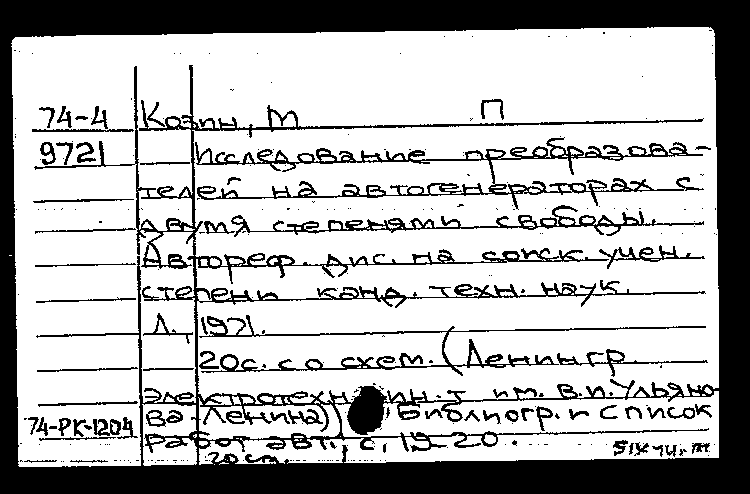 74-4 Козин, М П
9721 Исследование преобразова-
телей на автогенераторах с
двумя степенями свободы.
Автореф. дис. на соиск. учен.
степени канд. техн. наук.
Л., 1971.
20с. с о схем. (Ленингр.
электротехн. ин-т им. В.И. Ульяно-
ва-Ленина)) Библиогр. и список
74-РК-1204 работ авт., с. 19-20.
20 см.